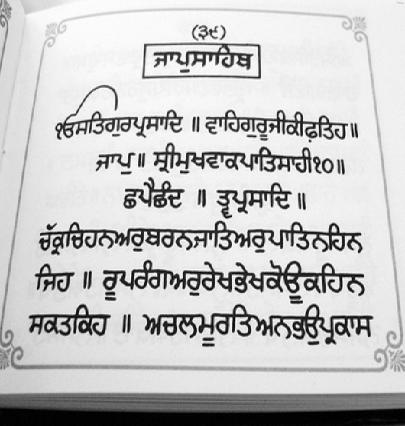 (੩੯)
ਜਾਪੁਸਾਹਿਬ
ੴਸਤਿਗੁਰਪ੍ਰਸਾਦਿ ॥ ਵਾਹਿਗੁਰੂਜੀਕੀਫ਼ਤਿਹ॥
ਜਾਪੁ॥ ਸ੍ਰੀਮੁਖਵਾਕਪਾਤਿਸਾਹੀ੧੦॥
ਛਪੈਛੰਦ ॥ ਤ੍ਵਪ੍ਰਸਾਦਿ॥
ਚੱਕ੍ਰਚਿਹਨਅਰੁਬਰਨਜਾਤਿਅਰੁਪਾਤਿਨਹਿਨ
ਜਿਹ ॥ ਰੂਪਰੰਗਅਰੁਰੇਖਭੇਖਕੋਊਕਹਿਨ
ਸਕਤਕਿਹ ॥ ਅਚਲਮੂਰਤਿਅਨਭਉਪ੍ਰਕਾਸ